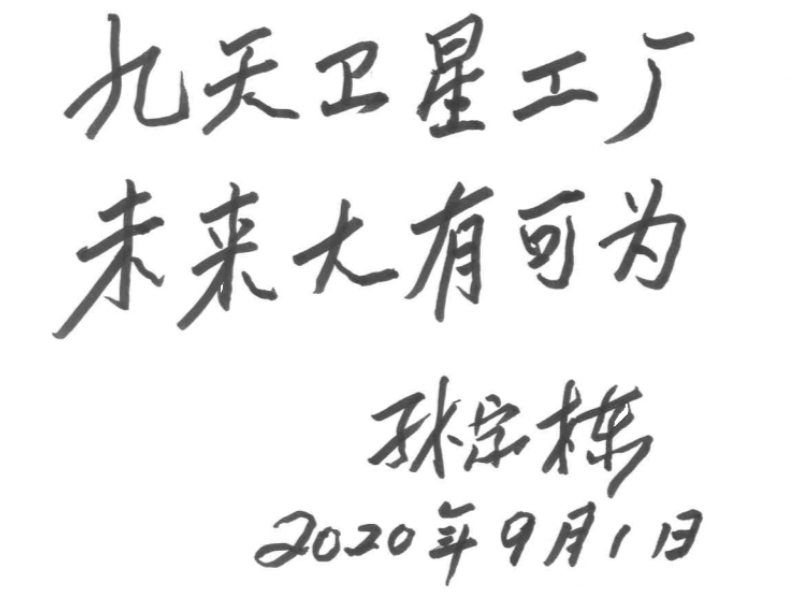 九天卫星工厂
未来大有可为
孙家栋
2020年9月1日